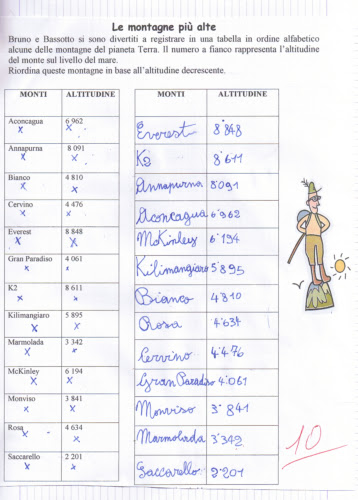 Le montagne più alte
Bruno e Bassotto si sono divertiti a registrare in una tabella in ordine alfabetico
alcune delle montagne del pianeta Terra. Il numero a fianco rappresenta l'altitudine
del monte sul livello del mare.
Riordina queste montagne in base all'altitudine decrescente.
MONTI ALTITUDINE
Aconcagua 6 962
x x
Annapurna 8 091
x x
Bianco 4 810
x x
Cervino 4 476
x x
Everest 8 848
x x
Gran Paradiso 4 061
x x
K2 8 611
x x
Kilimangiaro 5 895
x x
Marmolada 3 342
x x
McKinley 6 194
x x
Monviso 3 841
x x
Rosa 4 634
x x
Saccarello 2 201
x x
MONTI ALTITUDINE
Everest 8˙848
K2 8˙611
Annapurna 8˙091
Aconcagua 6˙962
McKinley 6˙194
Kilimangiaro 5˙895
Bianco 4˙810
Rosa 4˙634
Cervino 4˙476
Gran Paradiso 4˙061
Monviso 3˙841
Marmolada 3˙342
Saccarello 2˙201
10